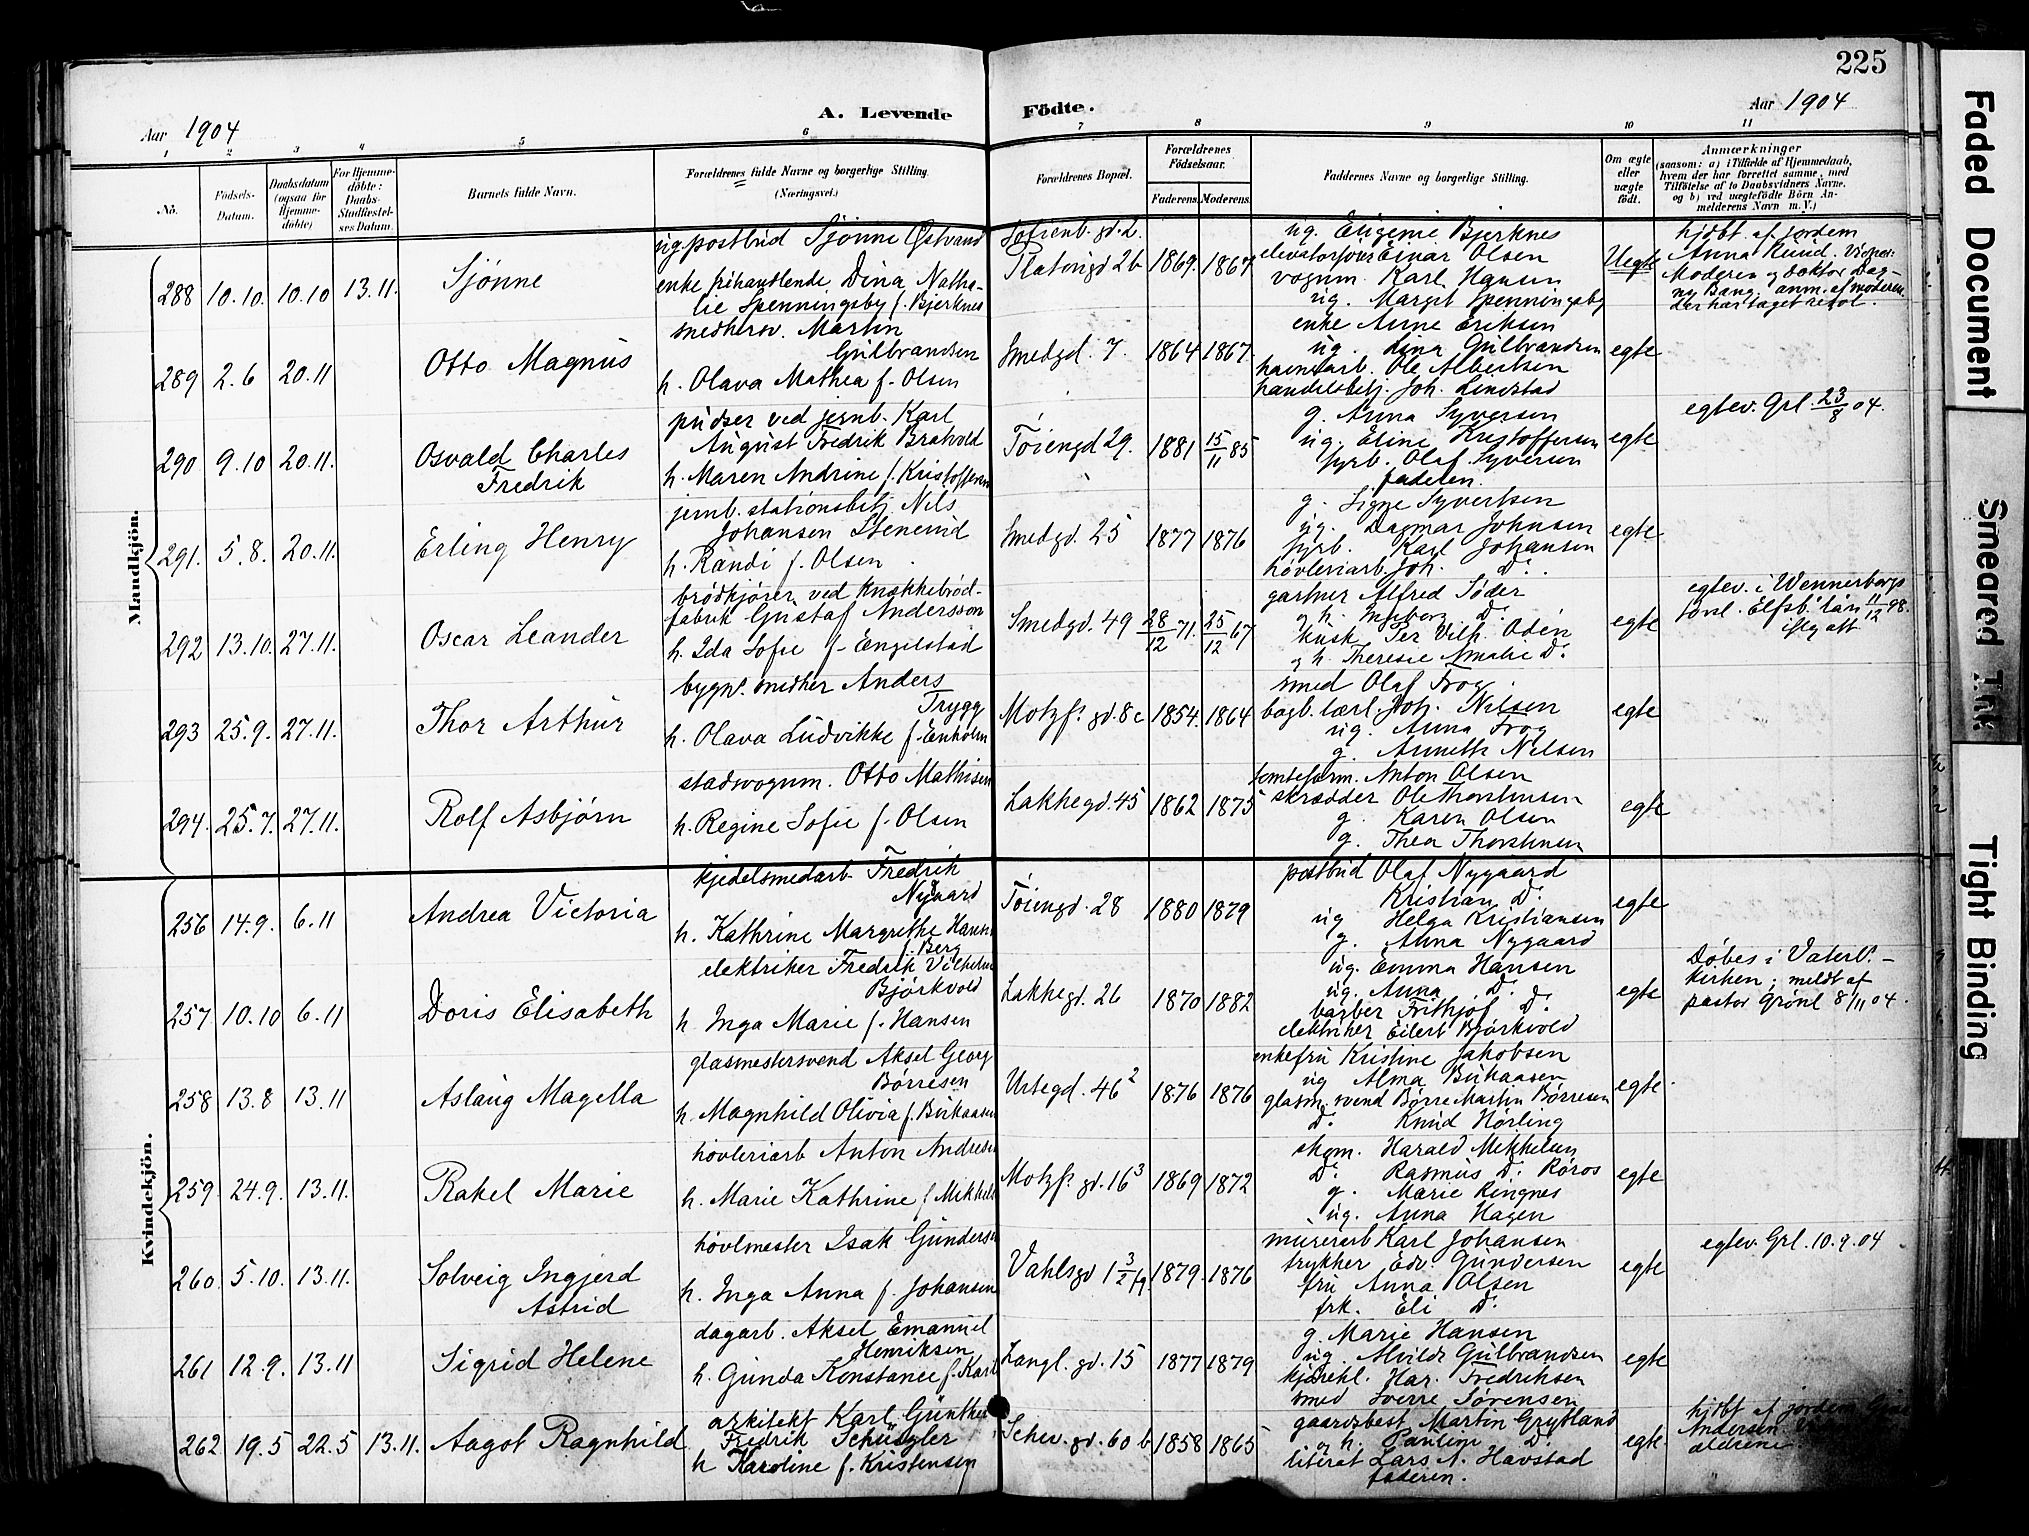 225
Aar 1904
A. Levende
Födte.
Aar 1904
1 2 3 4 5 6 7 8 9 10 11
No.
Födsels-Datum.
Daabsdatum (ogsaa for Hjemme-döbte)
For Hjemme-döbte: Daabs-Stadfæstel-ses Datum.
Barnets fulde Navn.
Forældrenes fulde Navne og borgerlige Stilling. (Næringsvei.)
Forældrenes Bopæl.
Forældrenes Födselsaar.
Faderens. Moderens.
Faddernes Navne og borgerlige Stilling.
Om ægte eller uægte födt.
Anmærkninger
(saasom: a) i Tilfælde af Hjemmedaab,
hvem der har forrettet samme, med
Tilföielse af to Daabsvidners Navne.
og b) ved uægtefödte Börn An-
melderens Navn m. V.)
Mandkjön.
288 10.10. 10.10 13.11. Sjønne
ug. postbud Sjønne Østvand
enke frihandlende Dina Natha-
lie Spenningsby f. Bjerknes
Sofienb. gd. 2.
Platousgd 26 1869. 1867
ug. Eugenie Bjerknes
elevatorfører Einar Olsen
vognm. Karl Hansen
ug. Margit Spenningsby
Uegte
hjdbt. af jordem
Anna Ruud.
Moderen og doktor Dag-
ny Bang. anm. af moderen
der har taget resol.
289 2.6 20.11 Otto Magnus
smedhersv. Martin
Gulbrandsen
h. Olava Mathea f. Olsen
Smedgd. 7. 1864 1867.
enke Anne Eriksen
ug. Lina Gulbrandsen
havnearb. Ole Albertsen
handelsbetj. Joh. Lindstad
egte
290 9.10 20.11. Osvald Charles
Fredrik
pudser ved jernb. Karl
August Fredrik Bratvold
h. Maren Andrine f. Kristoffersen
Tøiengd 29. 1881 15/11 85
g. Anna Syversen
ug. Eline Kristoffersen
fyrb. Olaf Syversen
faderen.
egte
egtev. Grl. 23/8 04.
291. 5.8. 20.11. Erling Henry
jernb. stationsbetj. Nils
Johansen Stenerud
h. Randi f. Olsen
Smedgd. 25 1877 1876
g. Signe Syvertsen
ug. Dagmar Johnsen
fyrb. Karl Johansen
høvleriarb. Joh. Do.
egte
292 13.10. 27.11. Oscar Leander
brødkjører ved knækkebrød-
fabrik Gustaf Andersson
h. Ida Sofie f. Engelstad
Smedgd. 49 28/12 71. 25/12 67
gartner Alfred Söder
g h. Ingeborg Do.
kusk Per Vilh. Odén
g h. Therese Amalie Do.
egte
egtev. i Wennersborgs
forsl. Elfsb. län 11/12 98.
iflg att.
293 25.9. 27.11. Thor Arthur
bygn. smedher Anders
Trygg
h. Olava Ludvikke f. Enholm
Motzf. gd. 8c 1854. 1864
smed Olaf Frog
bogb. lærl. Joh. Nilsen
ug. Anna Frog
g. Anneth Nelsen
egte
294. 25.7. 27.11. Rolf Asbjørn
stadsvognm. Otto Mathisen
h. Regine Sofie f. Olsen
Lakkegd. 45 1862 1875
tomteform. Anton Olsen
skrædder Ole Thorstensen
g. Karen Olsen
g. Thea Thorstensen
egte
Kvindekjön.
256 14.9. 6.11 Andrea Victoria
kjedelsmedarb. Fredrik
Nygaard
h. Kathrine Margrethe Hansen
f. Berg
Tøiengd. 28 1880 1879
postbud Olaf Nygaard
Kristian Do.
ug Helga Kristiansen
g. Anna Nygaard
egte
257 10.10 6.11 Doris Elisabeth
elektriker Fredrik Vilhelm
Bjørkvold
h. Inga Marie f. Hansen
Lakkegd. 26 1870 1882
ug. Emma Hansen
ug. Anna Do.
barber Frithjof Do.
elektriker Eilert Bjørkvold
egte
Døbes i Vaterl.-
kirken; meldt af
pastor Grønl 8/11 04.
258 13.8 13.11 Aslaug Magella
glasmestersvend Aksel Georg
Børresen
h. Magnhild Olivia f. Birkaasen
Urtegd. 46 2 1876 1876
enkefru Kristine Jakobsen
ug Alma Birkaasen
glasm. svend Børre Martin Børresen
Do. Knud Hørling
egte
259 24.9. 13.11. Rakel Marie
høvleriarb Anton Andresen
h. Marie Kathrine f. Mikkels
Motzf. gd. 16 3 1869 1872
skom. Harald Mikkelsen
Do. Rasmus Do. Røros
g. Marie Ringnes
ug. Anna Hagen
egte
260. 5.10. 13.11. Solveig Ingjerd
Astrid
høvlmester Isak Gundersen
h. Inga Anna f. Johansen
Vahlsgd 1 3/2 1879. 1876
murerarb Karl Johansen
trykker Edv. Gundersen
fru Anna Olsen
frk. Eli Do.
egte
egtev. Grl. 10.9.04
261 12.9. 13.11 Sigrid Helene
dagarb. Aksel Emanuel
Henriksen
h. Gunda Konstance f. Karl
Langl. gd. 15 1877 1879
g. Marie Hansen
ug. Alvilde Gulbrandsen
Har. Fredriksen
smed Sverre Sørensen
egte
262 19.5 22.5 13.11. Aagot Ragnhild
arkitekt Karl Günther
Fredrik Schüszler
h Karoline f. Kristensen
Schv. gd. 60 b 1858 1865
gaardsbest. Martin Grytland
g h. Pauline Do.
literat Lars A. Havstad
faderen.
egte
hjdbt af jordem
Andersen
Faded Document
Smeared Ink
Tight Binding